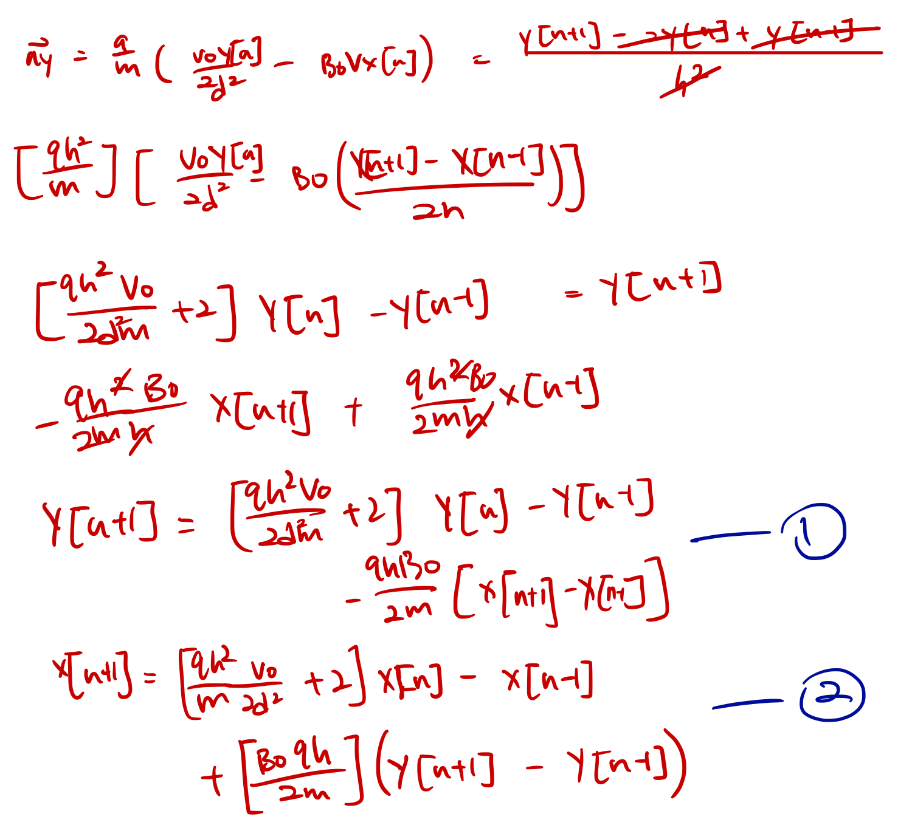 a⃗y = q/m ( V₀Y[n]/2d² − B₀Vx[n] ) = Y[n+1] − 2Y[n] + Y[n-1] / h²
[qh²/m] [ V₀Y[n]/2d² − B₀ ( X[n+1] − X[n-1] / 2h ) ]
[ qh²V₀/2d²m + 2 ] Y[n] − Y[n-1] = Y[n+1]
− qh²B₀/2mh X[n+1] + qh²B₀/2mh X[n-1]
Y[n+1] = [ qh²V₀/2d²m + 2 ] Y[n] − Y[n-1] — ①
− qhB₀/2m [ X[n+1] − X[n-1] ]
X[n+1] = [ qh²/m V₀/2d² + 2 ] X[n] − X[n-1] — ②
+ [ B₀qh/2m ] ( Y[n+1] − Y[n-1] )